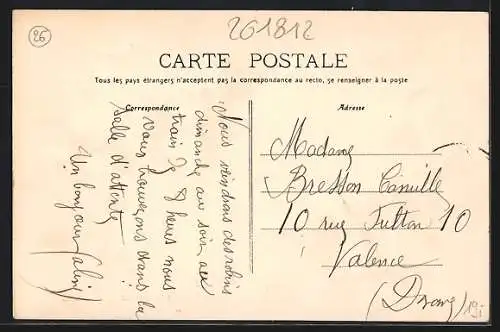 26
261812
CARTE POSTALE
Tous les pays étrangers n'acceptent pas la correspondance au recto, se renseigner à la poste
Correspondance
Adresse
Nous viendrons
dimanche au soir au
train de 8 heures nous
vous trouverons dans la
salle d'attente
Un bonjour
Madame
Bresson Camille
10 rue Fulton 10
Valence
(Drome)